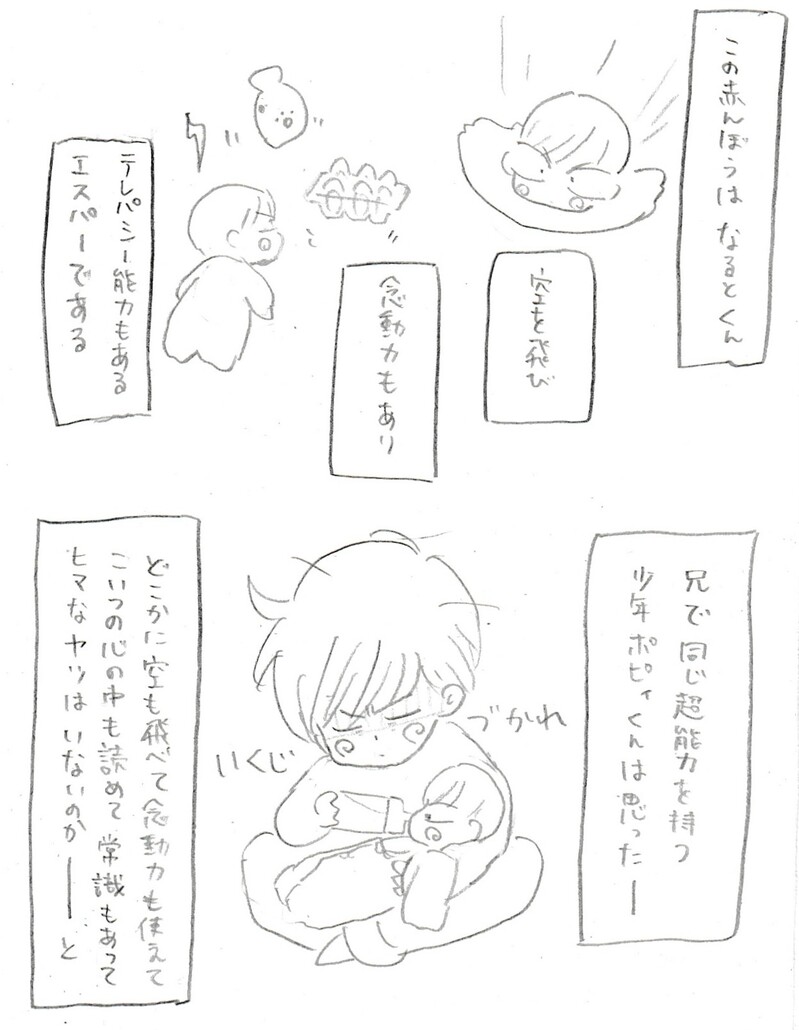 この赤んぼうは なるとくん
空を飛び
念動力もあり
テレパシー能力もある
エスパーである
兄で同じ超能力を持つ
少年ポピィくんは思ったー
いくじ
づかれ
どこかに空も飛べて念動力も使えて
こいつの心の中も読めて常識もあって
ヒマなヤツはいないのかーーと